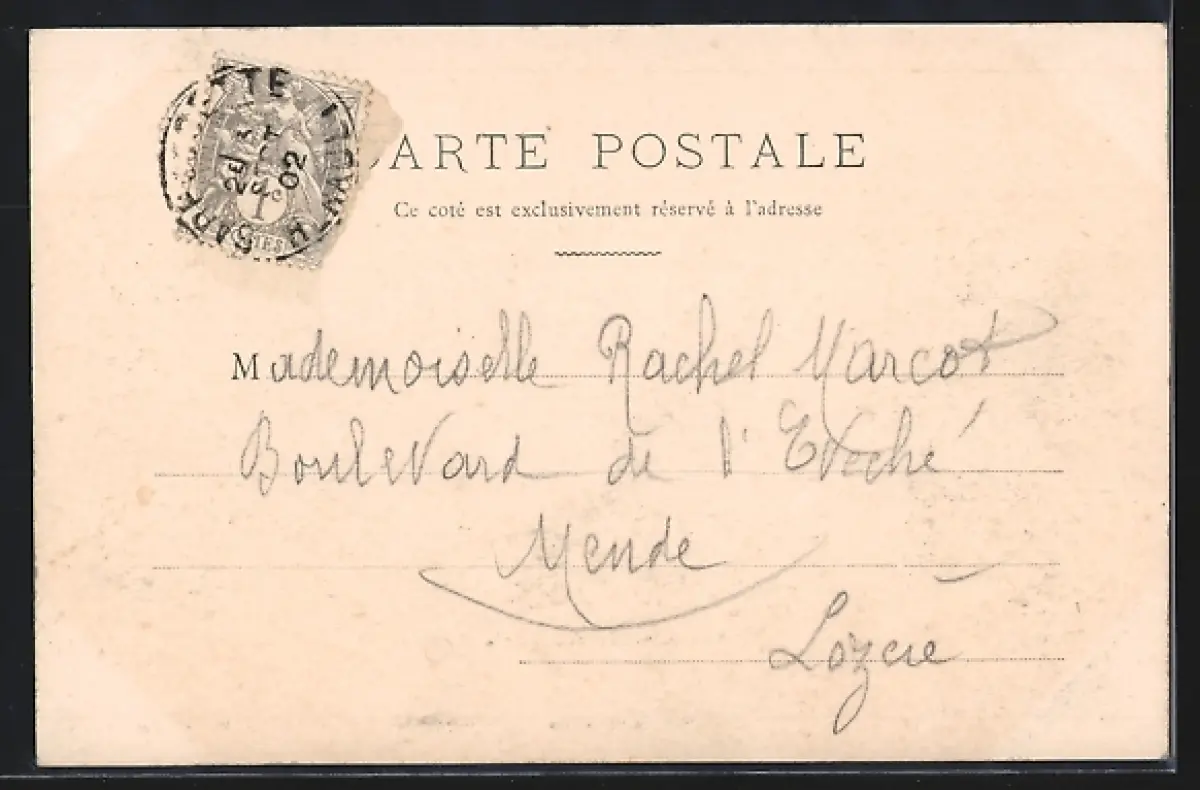 CARTE POSTALE
Ce coté est exclusivement réservé à l'adresse
Mademoiselle Rachel Marcot
Boulevard de l'Evêché
Mende
Lozère
02
1